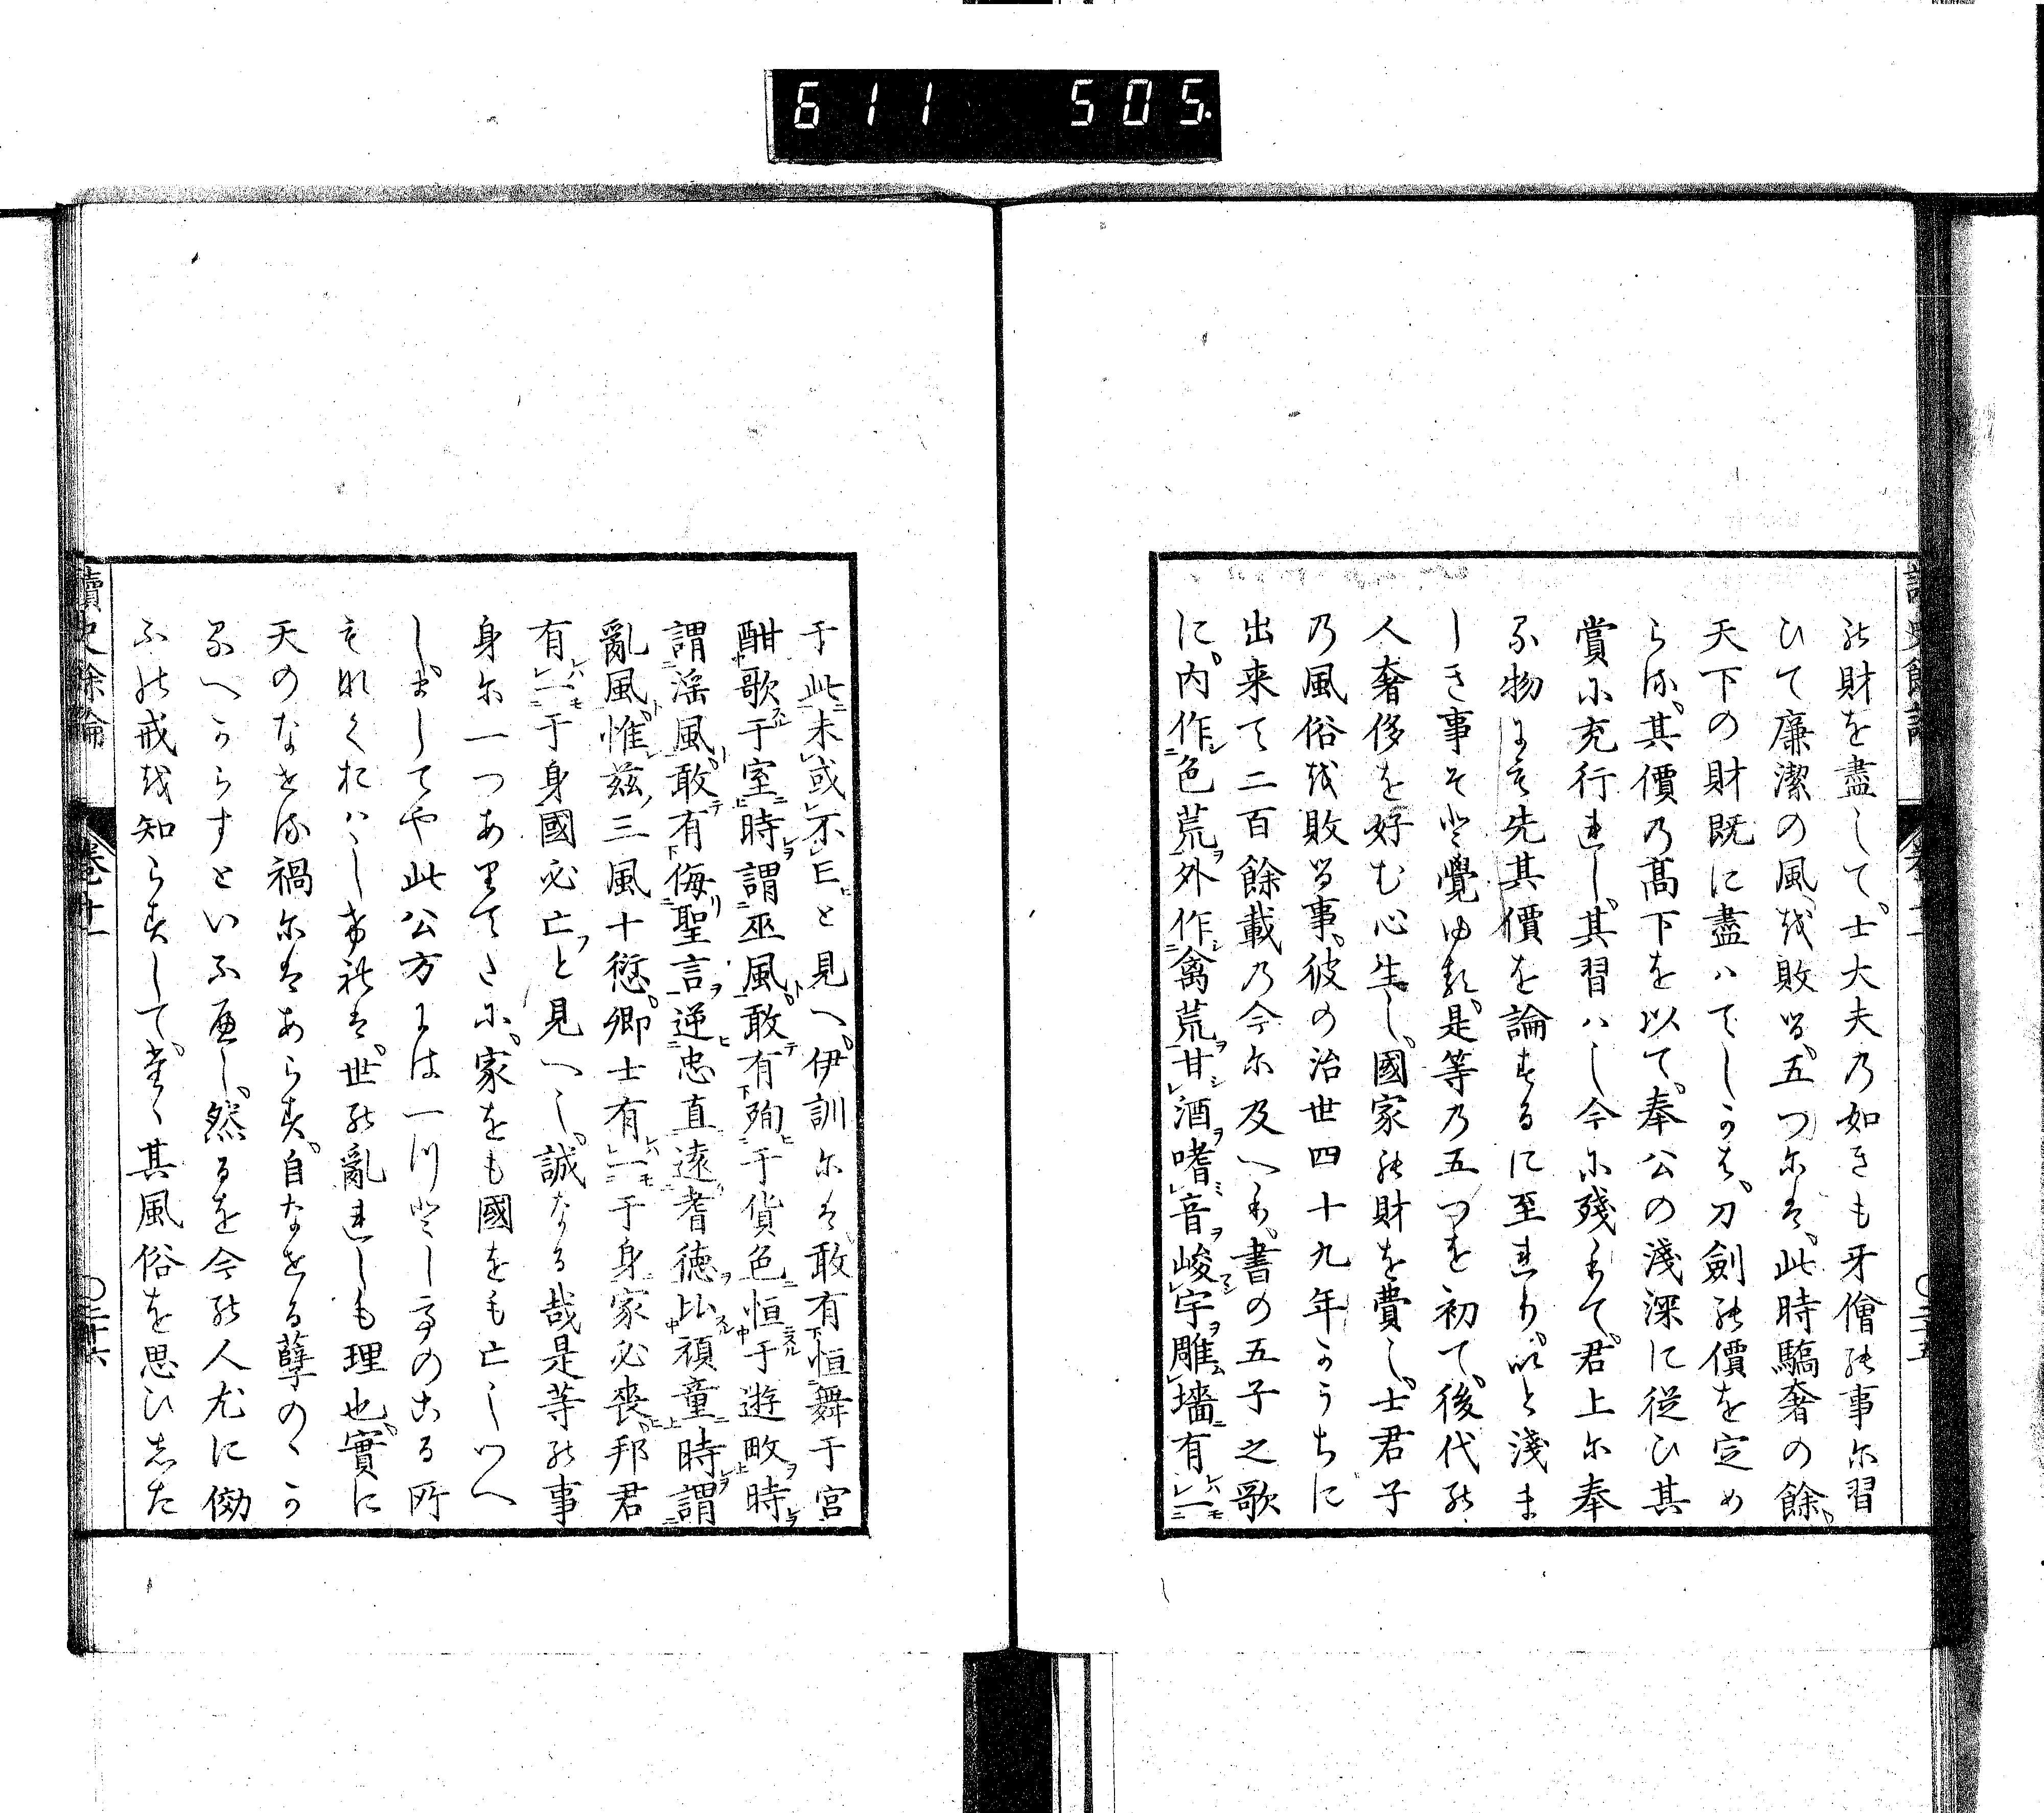 611 505.
讀史餘論 ○二十五
の財を盡して。士大夫の如きも牙僧の事に習
ひて廉潔の風を敗る。五つには。此時驕奢の餘。
天下の財既に盡ハてしかは。刀劍の價を定め
らる。其價の髙下を以て。奉公の淺深に從ひ其
賞に充行れし。其習ハし今に殘りて。君上に奉
る物にも先其價を論するに至れり。いと淺ま
しき事そと覺ゆる。是等の五つを初て。後代の
人奢侈を好む心生し。國家の財を費し。士君子
の風俗を敗る事。彼の治世四十九年かうちに
出来て二百餘載の今に及へり。書の五子之歌
に。内作色荒外作禽荒甘酒嗜音峻宇雕墻有一
于此未或不亡と見へ。伊訓には。敢有恒舞于宮
酣歌于室時謂巫風敢有殉于貨色恒于遊畋時
謂淫風敢有侮聖言逆忠直遠耆德比頑童時謂
亂風惟茲三風十愆卿士有一于身家必喪邦君
有一于身國必亡と見へし。誠なる哉是等の事
身に一つありてたに。家をも國をも亡しつへ
し。ましてや此公方には一つとし一のこる所
もなくおハしけれは。世の亂れしも理也。實に
天のなせる禍にはあらす。自なせる孽のゝか
るへからすといふ如し。然るを今の人尤に傚
ふの戒を知らすして。其風俗を思ひした
讀史餘論 卷十一 ○二十六